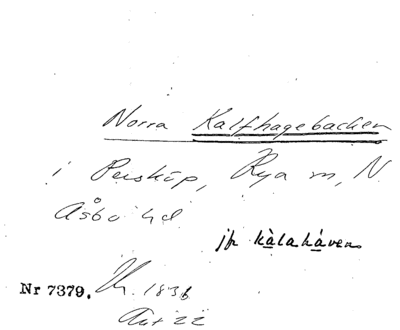 Norra Kalfhagebacken
i Persköp, Rya sn, N
Åsbo hd
jfr kàlaháven
Nr 7379. 1836
Akt 22